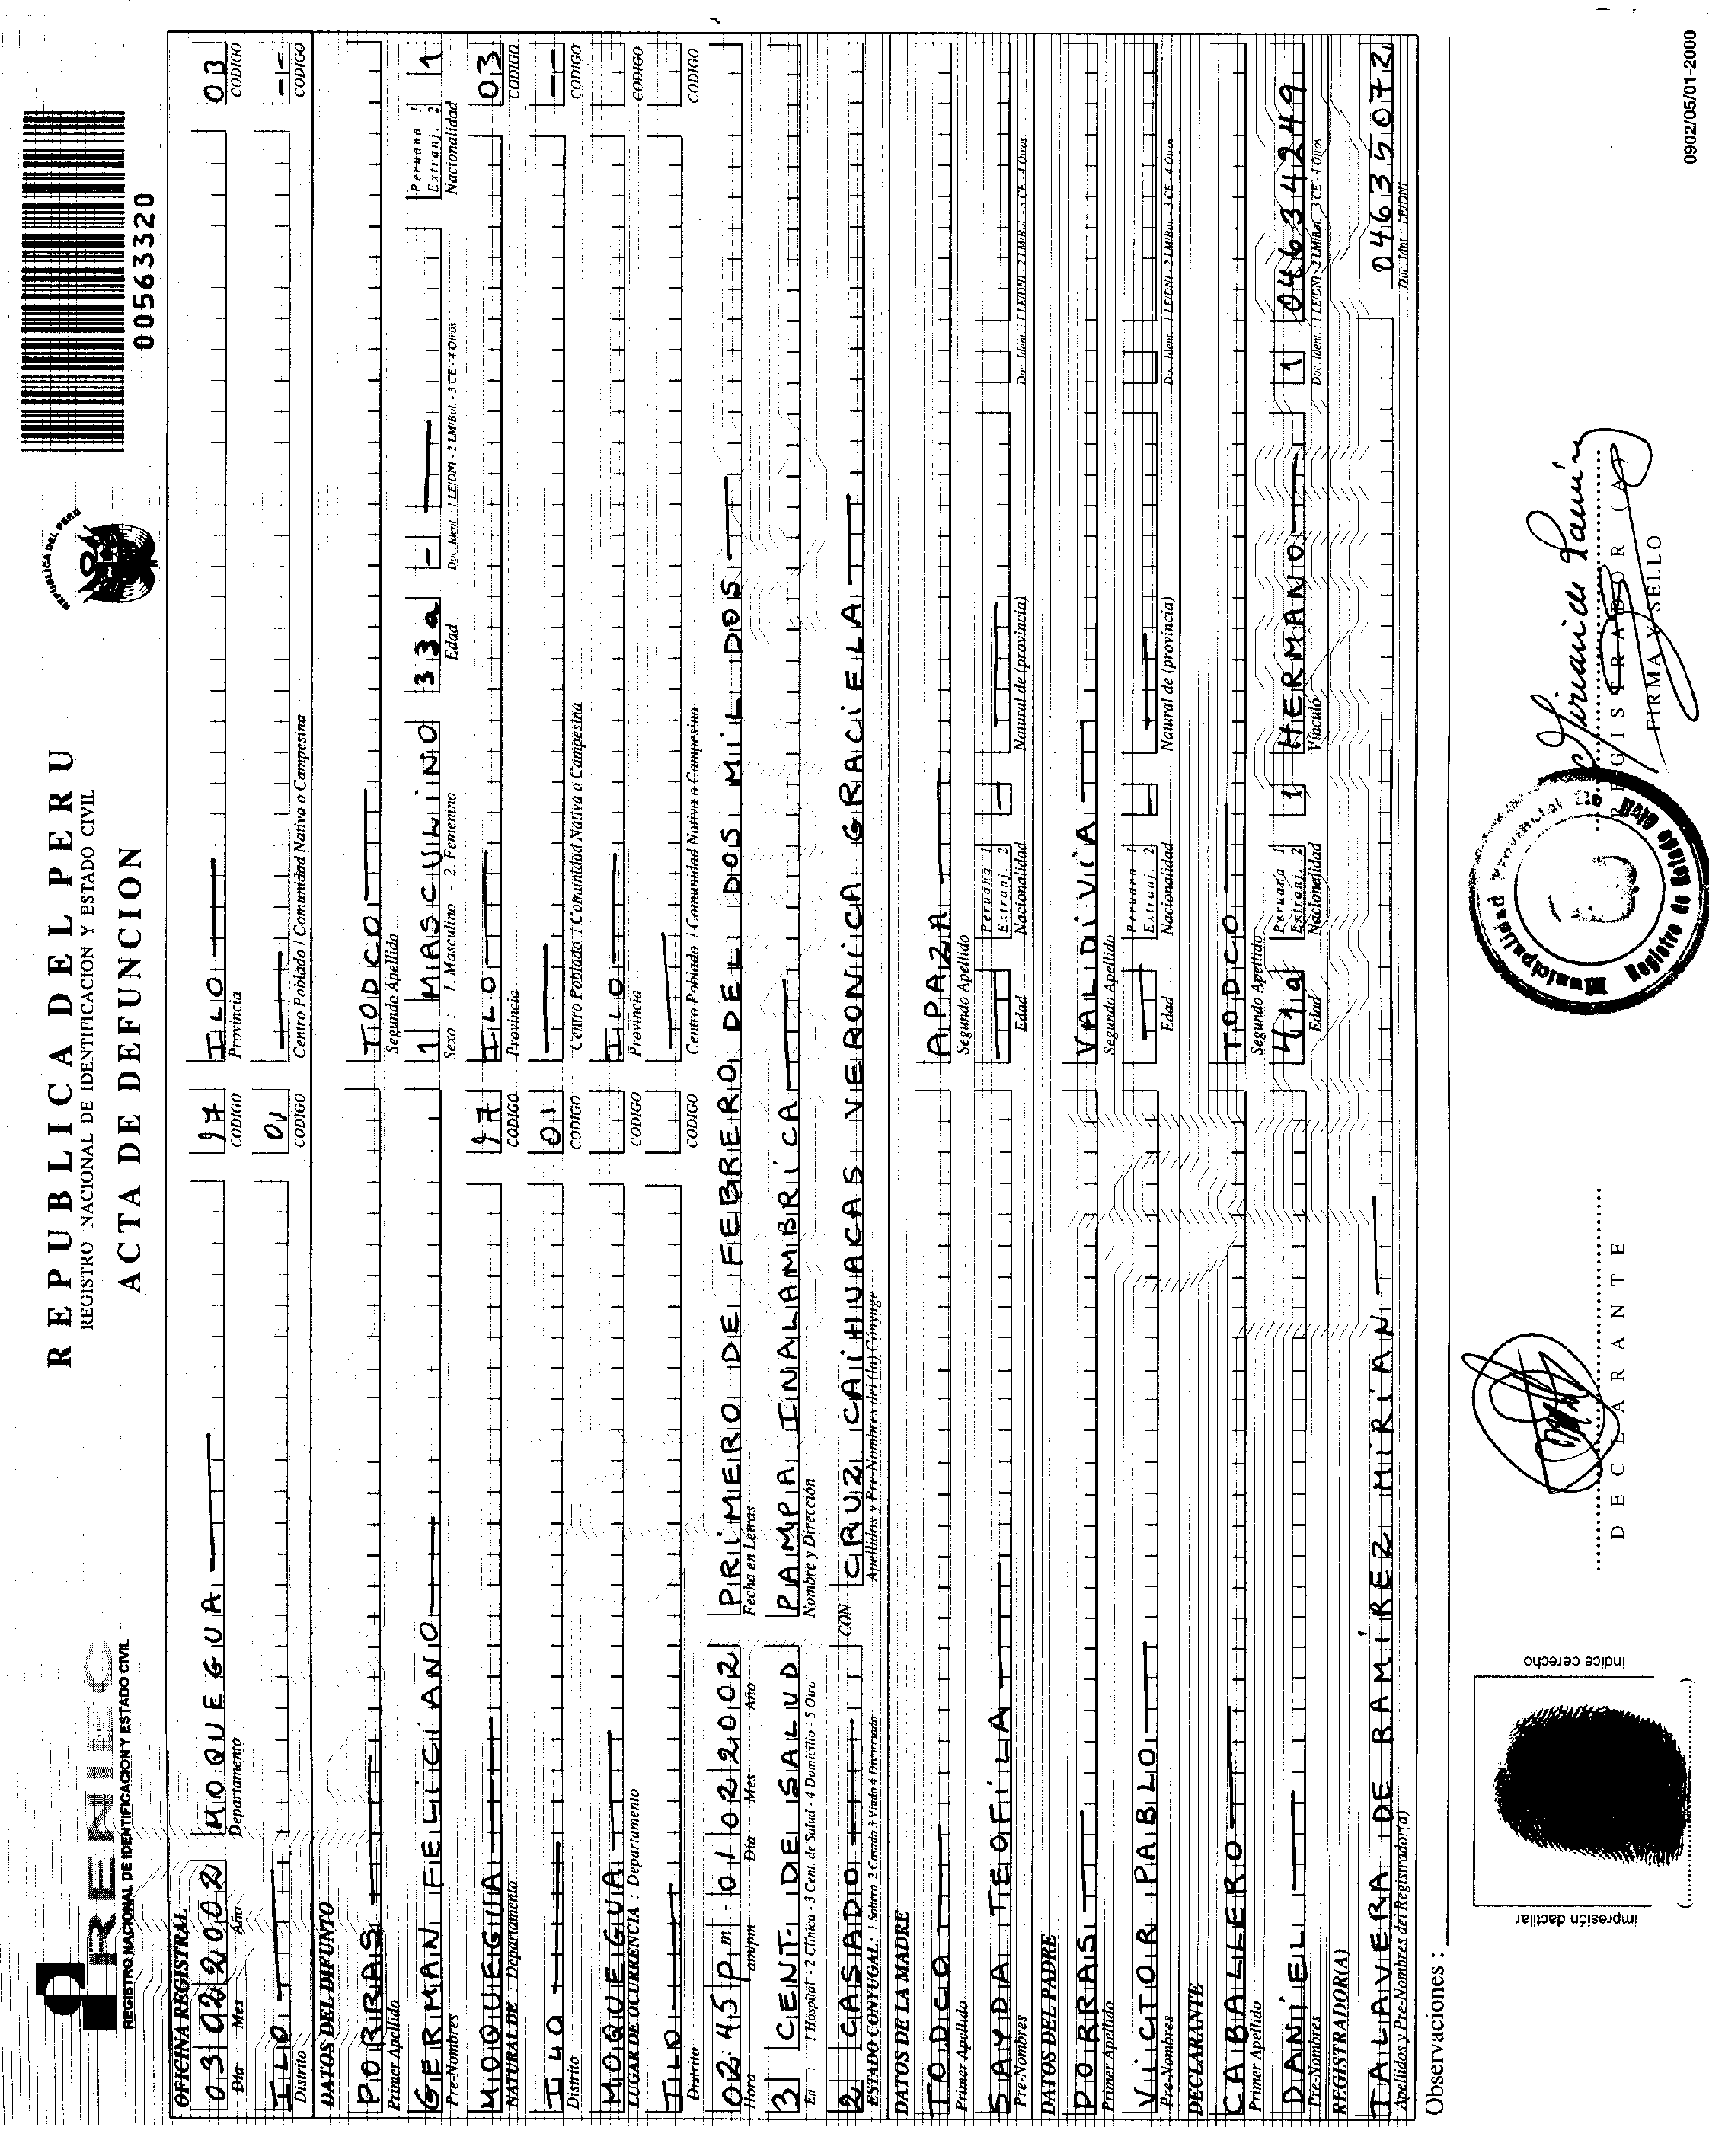 RENIEC
REGISTRO NACIONAL DE IDENTIFICACION Y ESTADO CIVIL
REPUBLICA DEL PERU
REGISTRO NACIONAL DE IDENTIFICACION Y ESTADO CIVIL
ACTA DE DEFUNCION
REPUBLICA DEL PERU
00563320
OFICINA REGISTRAL
03 02 2002 MOQUEGUA 17 ILO 03
Día Mes Año Departamento CODIGO Provincia CODIGO
ILO 01 --
Distrito CODIGO Centro Poblado / Comunidad Nativa o Campesina CODIGO
DATOS DEL DIFUNTO
PORRAS TODCO
Primer Apellido Segundo Apellido
GERMAN FELICIANO 1 MASCULINO 33a - Peruana 1 Extranj. 2 1
Pre-Nombres Sexo : 1. Masculino - 2. Femenino Edad Doc. Ident. : 1 LE/DNI - 2 LM/Bol. - 3 CE - 4 Otros Nacionalidad
MOQUEGUA 17 ILO 03
NATURAL DE : Departamento CODIGO Provincia CODIGO
ILO 01 --
Distrito CODIGO Centro Poblado / Comunidad Nativa o Campesina CODIGO
MOQUEGUA ILO
LUGAR DE OCURRENCIA : Departamento CODIGO Provincia CODIGO
ILO
Distrito CODIGO Centro Poblado / Comunidad Nativa o Campesina CODIGO
02:45 pm - 01 02 2002 PRIMERO DE FEBRERO DEL DOS MIL DOS
Hora am/pm Día Mes Año Fecha en Letras
3 CENT. DE SALUD PAMPA INALAMBRICA
En : 1 Hospital - 2 Clínica - 3 Cent. de Salud - 4 Domicilio - 5 Otro Nombre y Dirección
2 CASADO CON CRUZ CAIHUACAS VERONICA GRACIELA
ESTADO CONYUGAL : 1 Soltero 2 Casado 3 Viudo 4 Divorciado Apellidos y Pre-Nombres del (la) Cónyuge
DATOS DE LA MADRE
TODCO APAZA
Primer Apellido Segundo Apellido
SAYDA TEOFILA Peruana 1 Extranj. 2 -
Pre-Nombres Edad Nacionalidad Natural de (provincia) Doc. Ident. : 1 LE/DNI - 2 LM/Bol. - 3 CE - 4 Otros
DATOS DEL PADRE
PORRAS VALDIVIA
Primer Apellido Segundo Apellido
VICTOR PABLO Peruana 1 Extranj. 2 -
Pre-Nombres Edad Nacionalidad Natural de (provincia) Doc. Ident. : 1 LE/DNI - 2 LM/Bol. - 3 CE - 4 Otros
DECLARANTE
CABALLERO TODCO
Primer Apellido Segundo Apellido
DANIEL 41a Peruana 1 Extranj. 2 1 HERMANO 1 04634249
Pre-Nombres Edad Nacionalidad Vínculo Doc. Ident. : 1 LE/DNI - 2 LM/Bol. - 3 CE - 4 Otros
REGISTRADOR(A)
TALAVERA DE RAMIREZ MIRIAN 04635072
Apellidos y Pre-Nombres del Registrador(a) Doc. Idnt : LE/DNI
Observaciones :
impresión dactilar
indice derecho
DECLARANTE
Municipalidad Provincial Ilo
Registro de Estado Civil
REGISTRADOR (A)
FIRMA Y SELLO
0902/05/01-2000